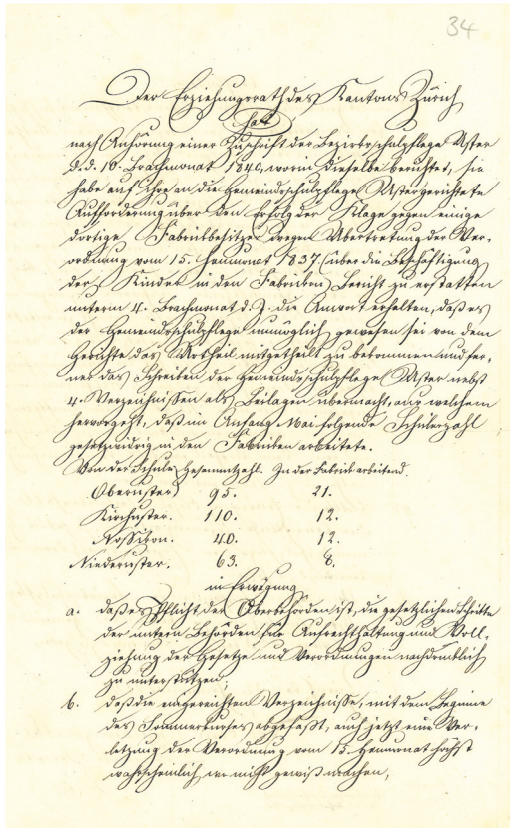 34
Der Erziehungsrath des Kantons Zürich
hat
nach Anhörung einer Zuschrift der Bezirksschulpflege Uster
d. d. 10. Brachmonat 1840, worin dieselbe berichtet, sie
habe auf ihre an die Gemeindsschulpflege Uster gerichtete
Aufforderung über den Erfolg der Klage gegen einige
dortige Fabrikbesitzer wegen Übertretung der Ver-
ordnung vom 15. Heumonat 1837. (über die Beschäftigung
der Kinder in den Fabriken) Bericht zu erstatten
unterm 4. Brachmonat d. J. die Antwort erhalten, daß es
der Gemeindsschulpflege unmöglich gewesen sei von dem
Gerichte das Urtheil mitgetheilt zu bekommen und fer-
ner das Schreiben der Gemeindsschulpflege Uster nebst
4. Verzeichnissen als Beilagen übermacht, aus welchem
hervorgeht, daß im Anfang Mai folgende Schülerzahl
gesetzwidrig in den Fabriken arbeitete.
Von der Schule Gesammtzahl. In der Fabrik arbeitend.
Oberuster 95. 21.
Kirchuster. 110. 12.
Nossikon. 40. 12.
Niederuster. 63. 8.
in Erwägung
a. daß es Pflicht der Oberbehörden ist, die gesetzlichen Schritte
der untern Behörden für Aufrechthaltung und Voll-
ziehung der Gesetze und Verordnungen nachdrücklich
zu unterstützen;
b. daß die eingereichten Verzeichnisse, mit dem Beginne
des Sommerkurses abgefaßt, auch jetzt eine Ver-
letzung der Verordnung vom 15. Heumonat höchst
wahrscheinlich, wo nicht gewiß machen,